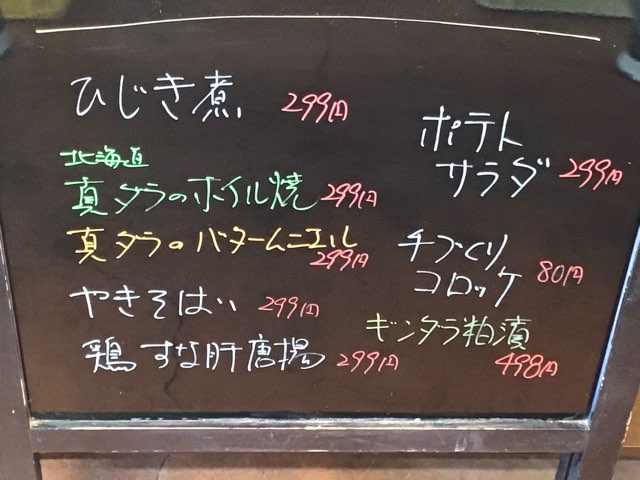 ひじき煮 299円
北海道
真ダラのホイル焼 299円
真ダラのバタームニエル
299円
やきそばい 299円
鶏すな肝唐揚 299円
ポテト
サラダ 299円
手づくり
コロッケ 80円
ギンタラ粕漬
498円